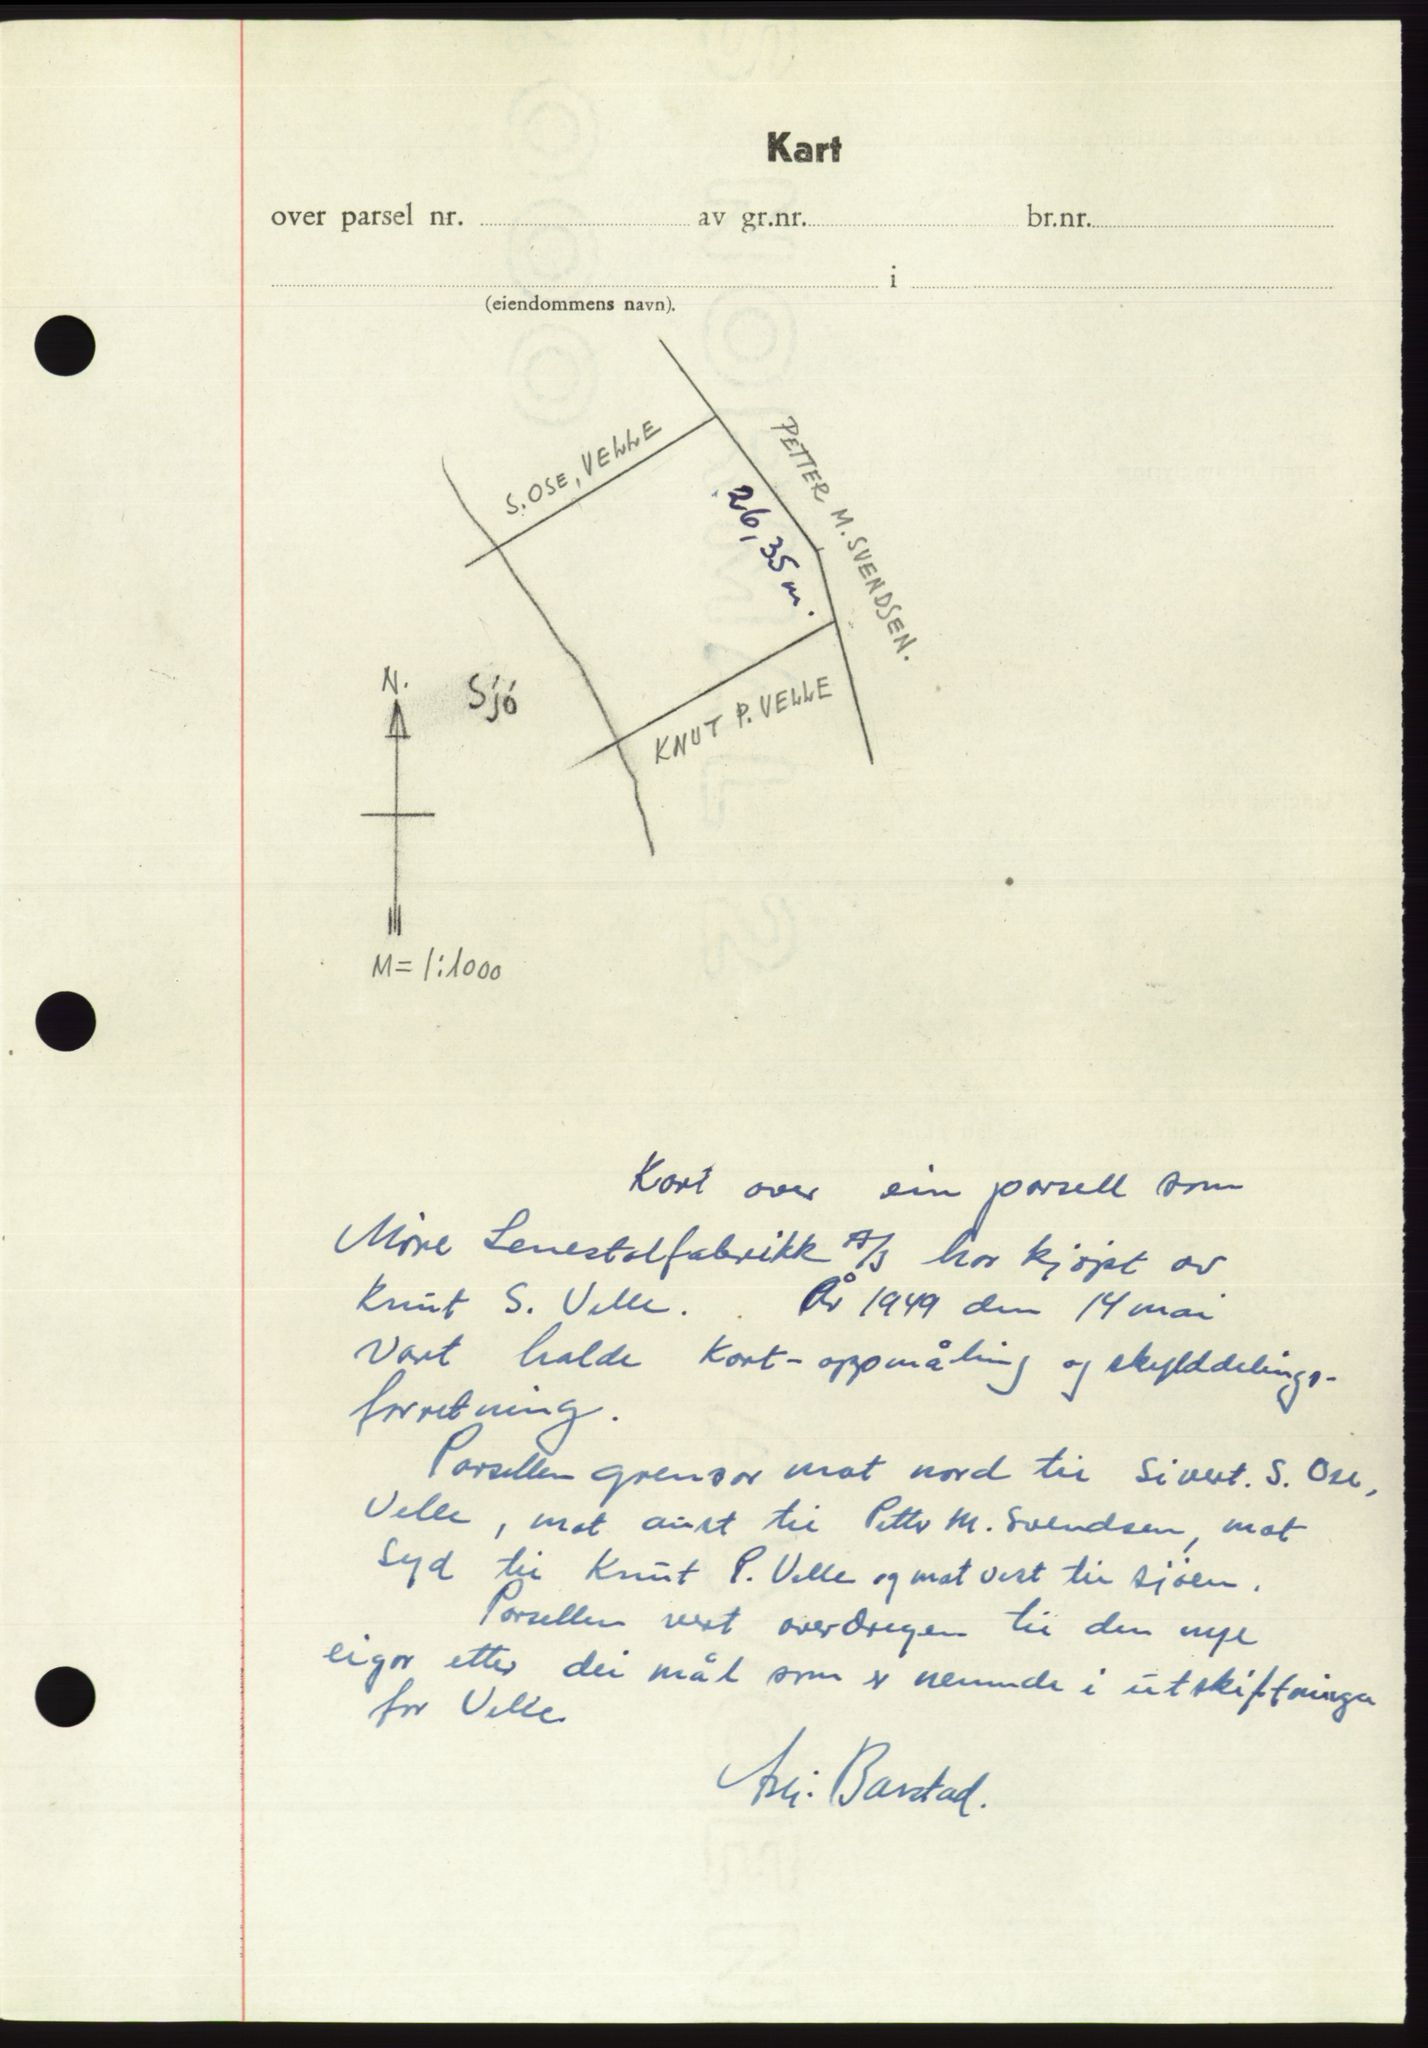 Kart
over parsel nr. av gr.nr. br.nr.
i
(eiendommens navn).
S. OSE, VELLE
PETTER M. SVENDSEN.
26,35 m.
N.
Sjö
KNUT P. VELLE
M= 1:1000
Kart over ein parsell som
Möre Lenestolfabrikk A/S har kjöpt av
Knut S. Velle. År 1949 den 14 mai
vart halde kart-oppmåling og skylddelings-
forretning.
Parsellen grensar mot nord til Sivert. S. Ose,
Velle, mot aust til Petter M. Svendsen, mot
Syd til Knut P. Velle og mot vest til sjöen.
Parsellen vert overdregen til den nye
eigar etter dei mål som er nemnde i utskiftninga
for Velle
Barstad.